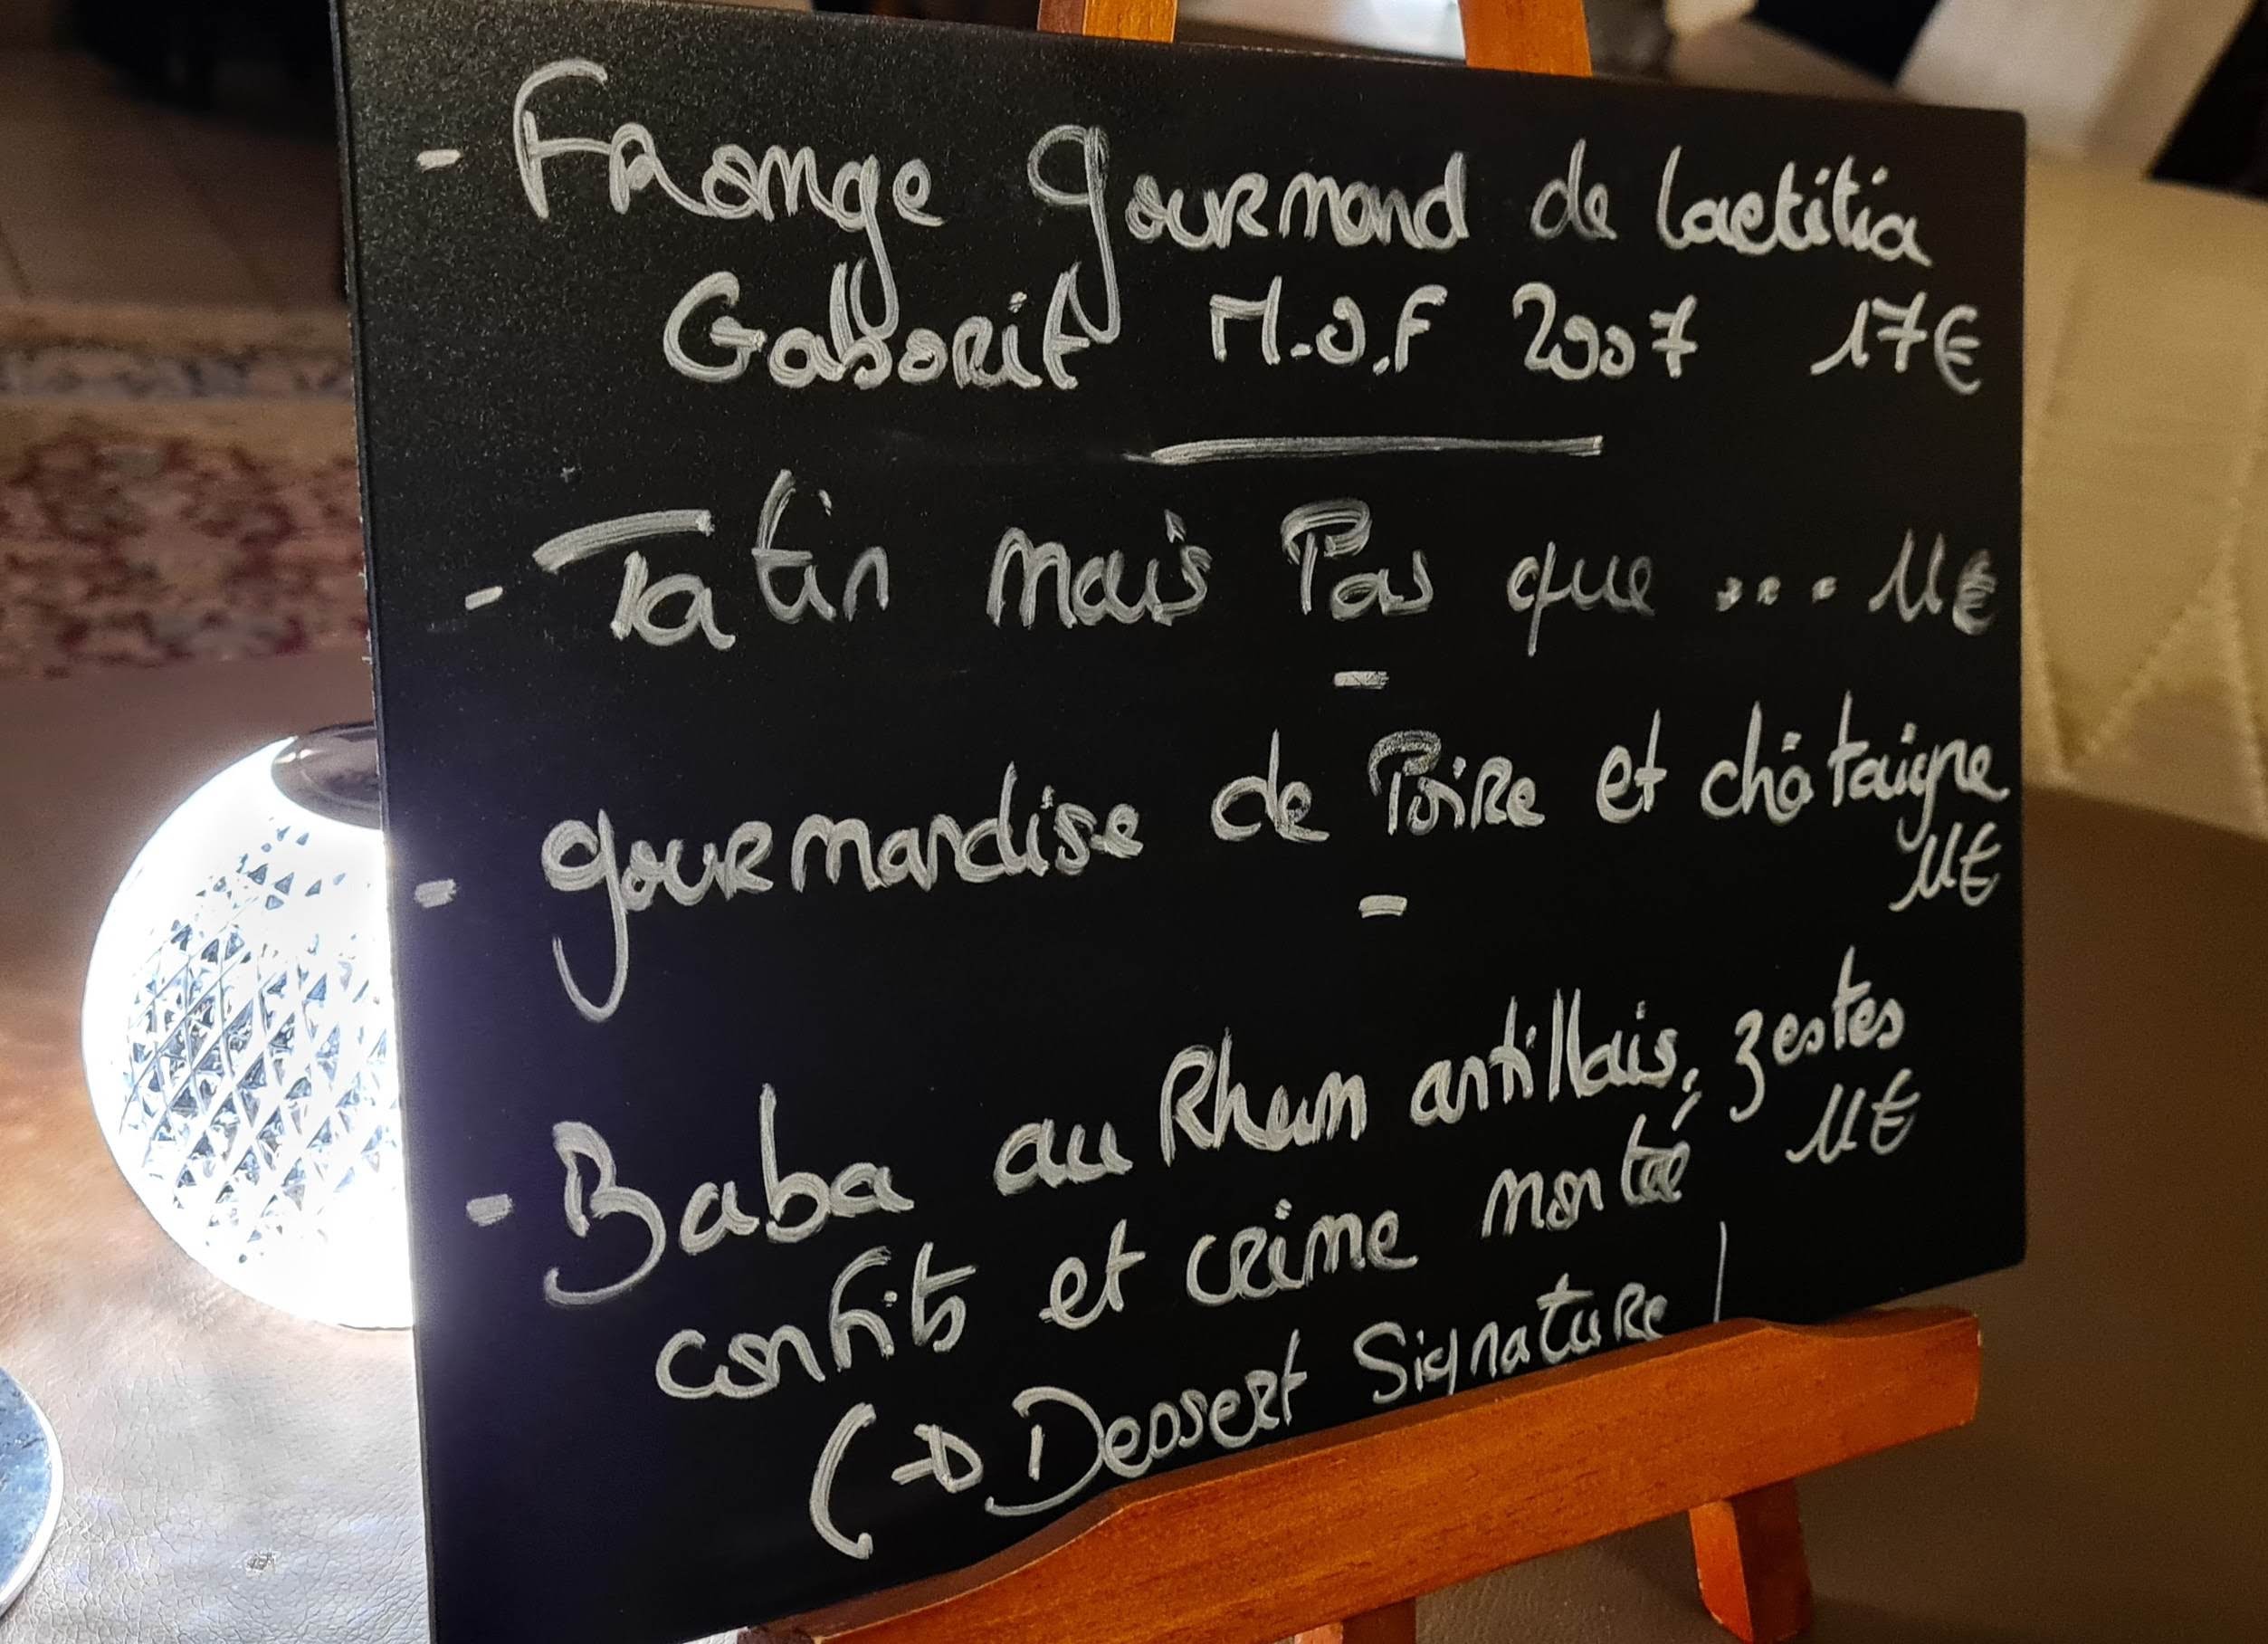 - Fromage gourmand de Laetitia
Gaborit M.O.F 2007 17€
- Tatin mais Pas que ... 11€
-
- gourmandise de Poire et châtaigne
11€
-
- Baba au Rhum antillais, zestes
confits et crème montée 11€
(→ Dessert Signature)